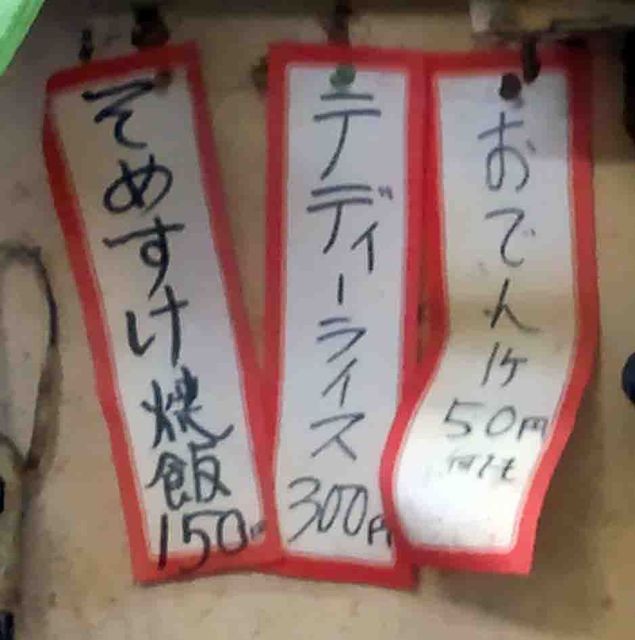 おでん1ヶ
50円
何でも
テディーライス
300円
そめすけ焼飯
150円